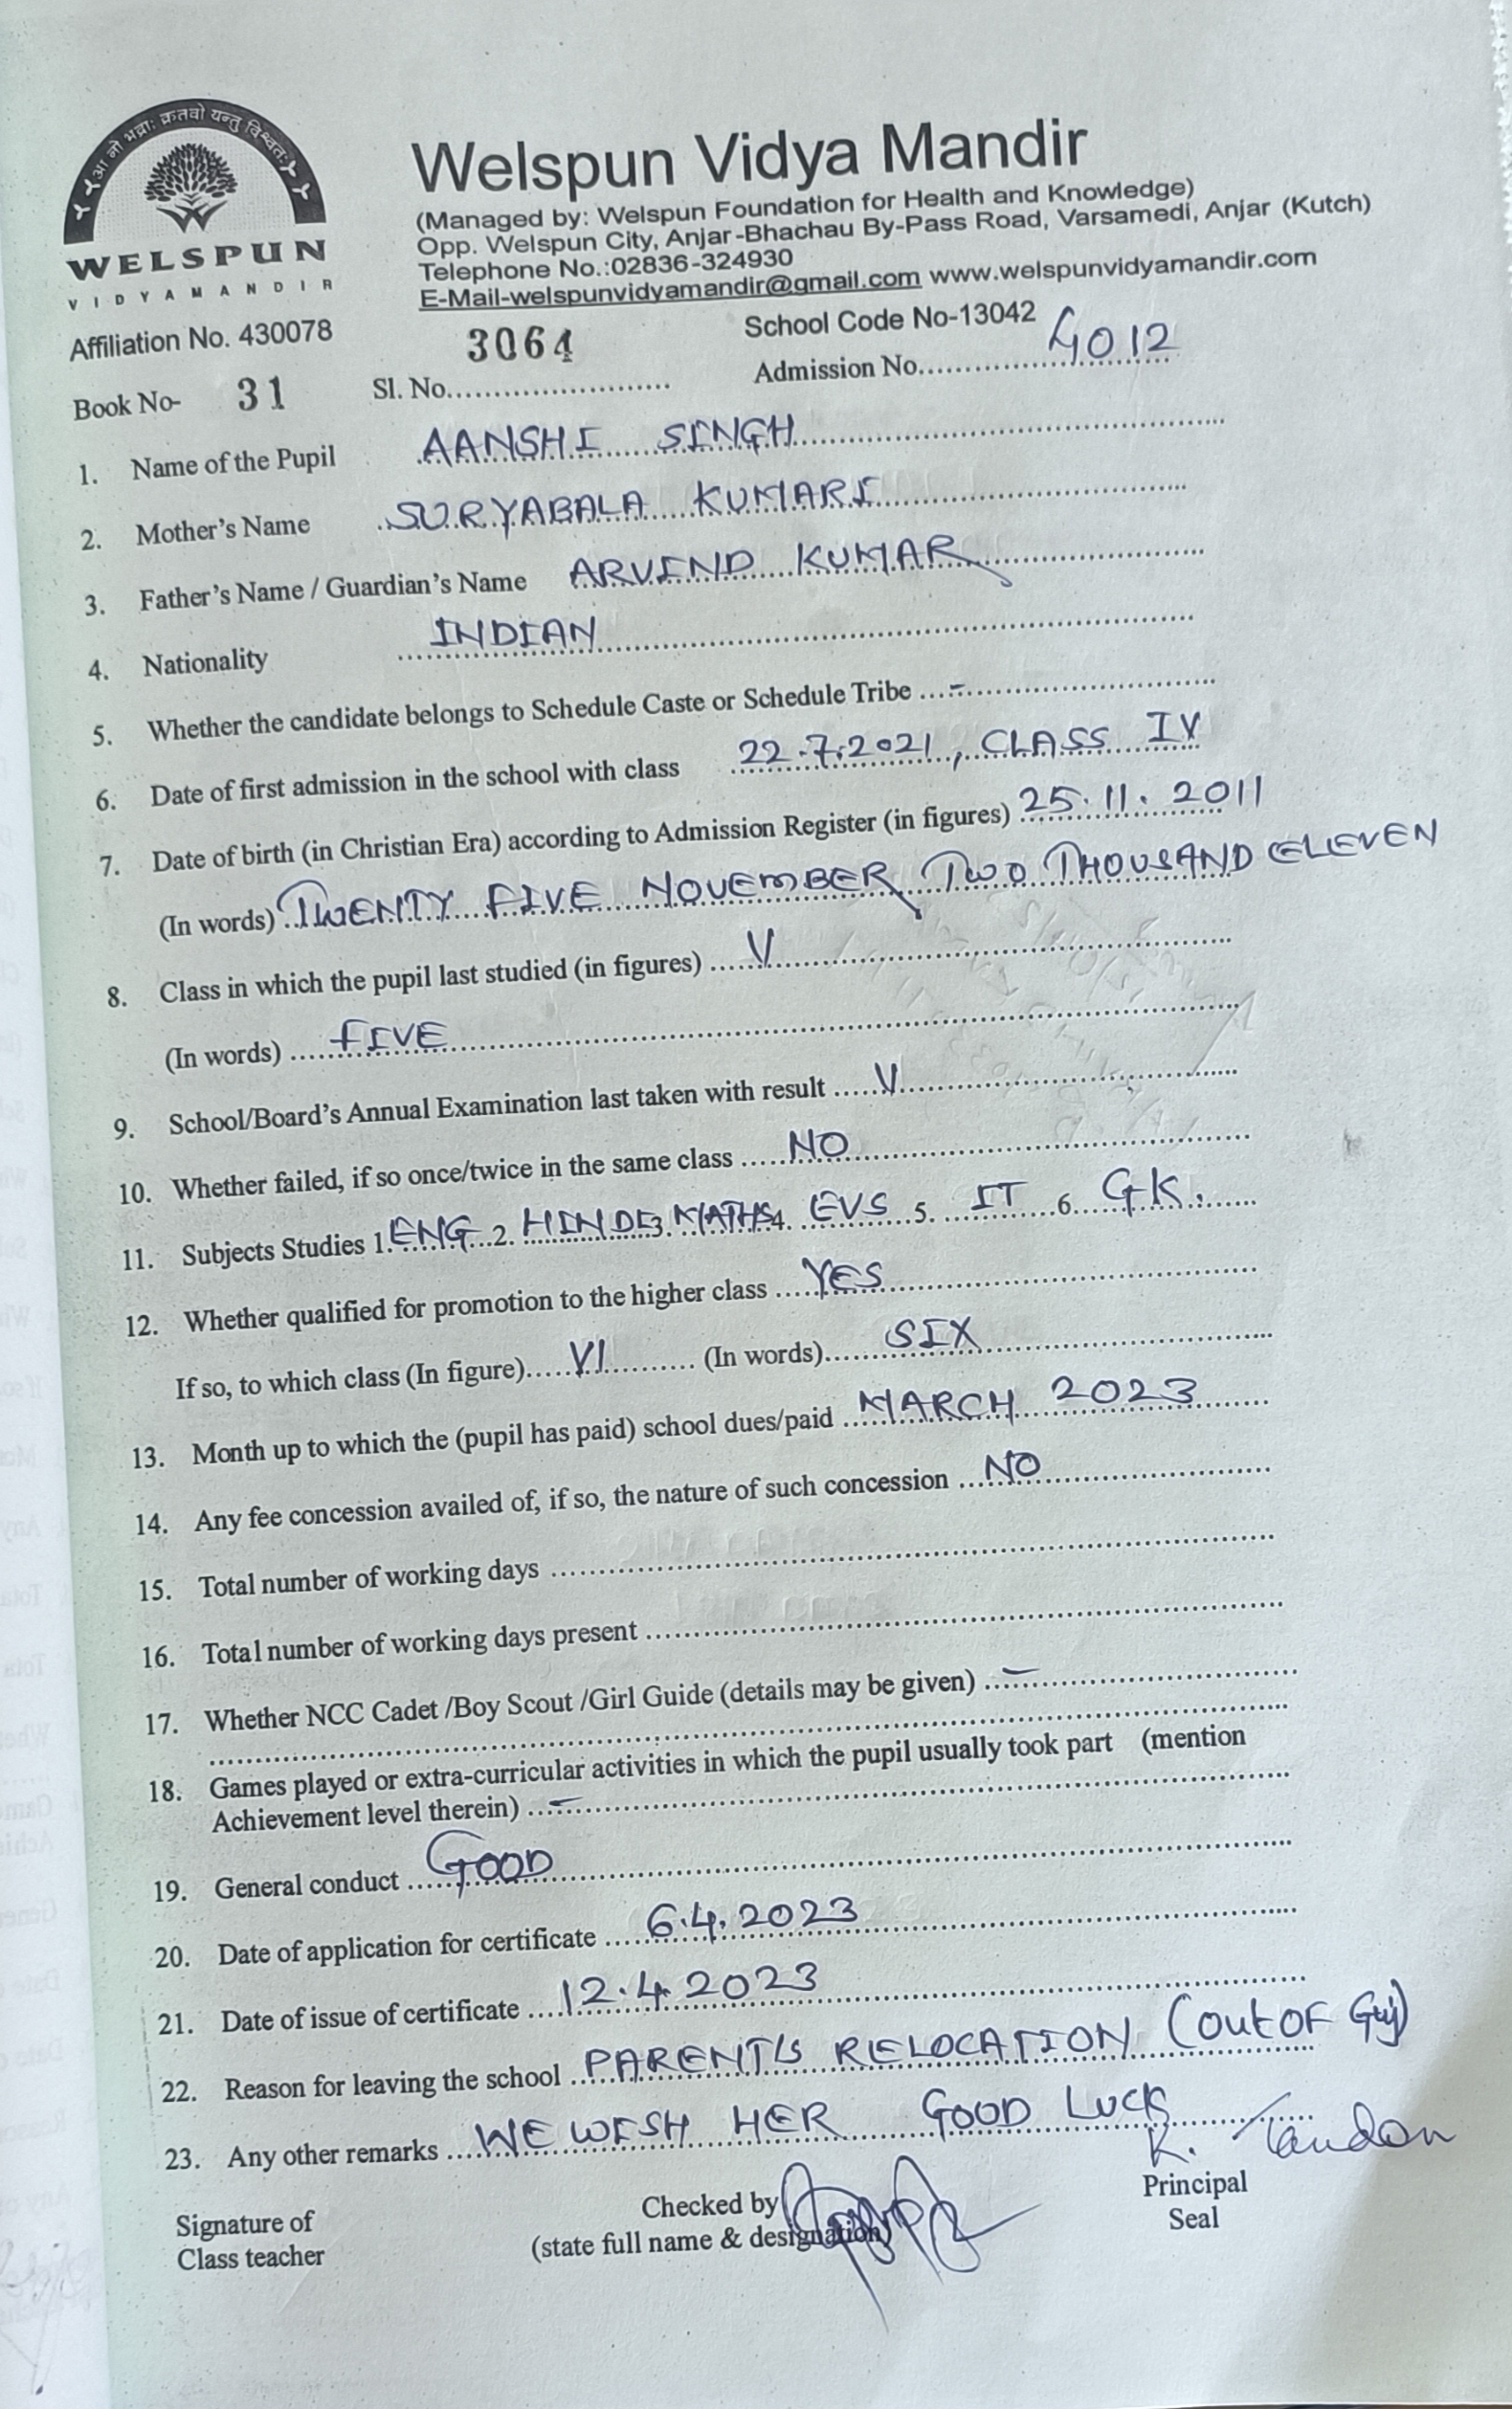 आ नो भद्राः क्रतवो यन्तु विश्वतः
WELSPUN
VIDYAMANDIR
Welspun Vidya Mandir
(Managed by: Welspun Foundation for Health and Knowledge)
Opp. Welspun City, Anjar-Bhachau By-Pass Road, Varsamedi, Anjar (Kutch)
Telephone No.:02836-324930
E-Mail-welspunvidyamandir@gmail.com www.welspunvidyamandir.com
Affiliation No. 430078 School Code No-13042
Book No- 31 Sl. No. 3064 Admission No. 4012
1. Name of the Pupil AANSHI SINGH
2. Mother's Name SURYABALA KUMARI
3. Father's Name / Guardian's Name ARVIND KUMAR
4. Nationality INDIAN
5. Whether the candidate belongs to Schedule Caste or Schedule Tribe -
6. Date of first admission in the school with class 22.7.2021, CLASS IV
7. Date of birth (in Christian Era) according to Admission Register (in figures) 25.11.2011
(In words) TWENTY FIVE NOVEMBER, TWO THOUSAND ELEVEN
8. Class in which the pupil last studied (in figures) V
(In words) FIVE
9. School/Board's Annual Examination last taken with result V
10. Whether failed, if so once/twice in the same class NO
11. Subjects Studies 1. ENG 2. HINDI 3. MATHS 4. EVS 5. IT 6. GK.
12. Whether qualified for promotion to the higher class YES
If so, to which class (In figure) VI (In words) SIX
13. Month up to which the (pupil has paid) school dues/paid MARCH 2023
14. Any fee concession availed of, if so, the nature of such concession NO
15. Total number of working days
16. Total number of working days present
17. Whether NCC Cadet /Boy Scout /Girl Guide (details may be given) -
18. Games played or extra-curricular activities in which the pupil usually took part (mention
Achievement level therein) -
19. General conduct GOOD
20. Date of application for certificate 6.4.2023
21. Date of issue of certificate 12.4.2023
22. Reason for leaving the school PARENT'S RELOCATION (Out OF Guj)
23. Any other remarks WE WISH HER GOOD LUCK
K. Tandon
Signature of Checked by Principal
Class teacher (state full name & designation) Seal